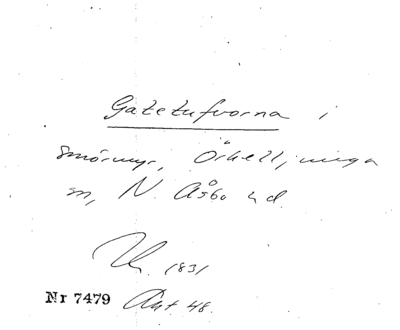 Gatetufvorna i
Smörmyr, Örkelljunga
sn, N. Åsbo hd.
1831
Nr 7479 Ant. 48.